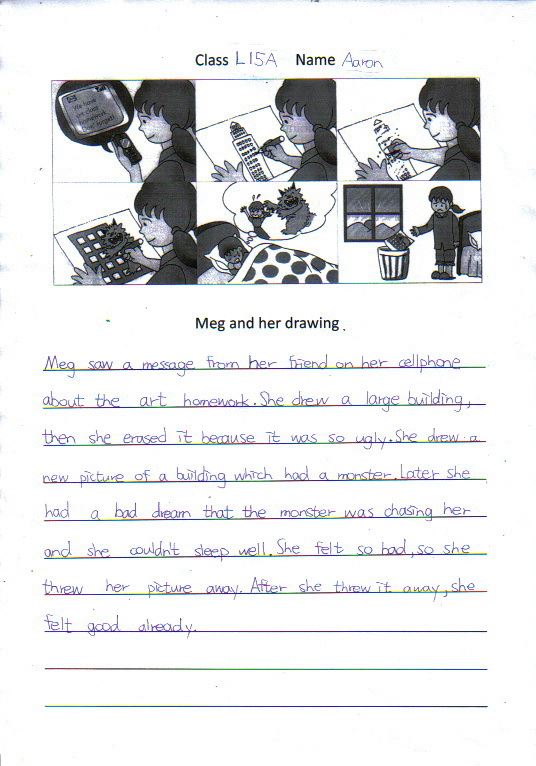 Class L15A Name Aaron
We have
art class
homework.
Don't forget!
Meg and her drawing.
Meg saw a message from her friend on her cellphone
about the art homework. She drew a large building,
then she erased it because it was so ugly. She drew a
new picture of a building which had a monster. Later she
had a bad dream that the monster was chasing her
and she couldn't sleep well. She felt so bad, so she
threw her picture away. After she threw it away, she
felt good already.